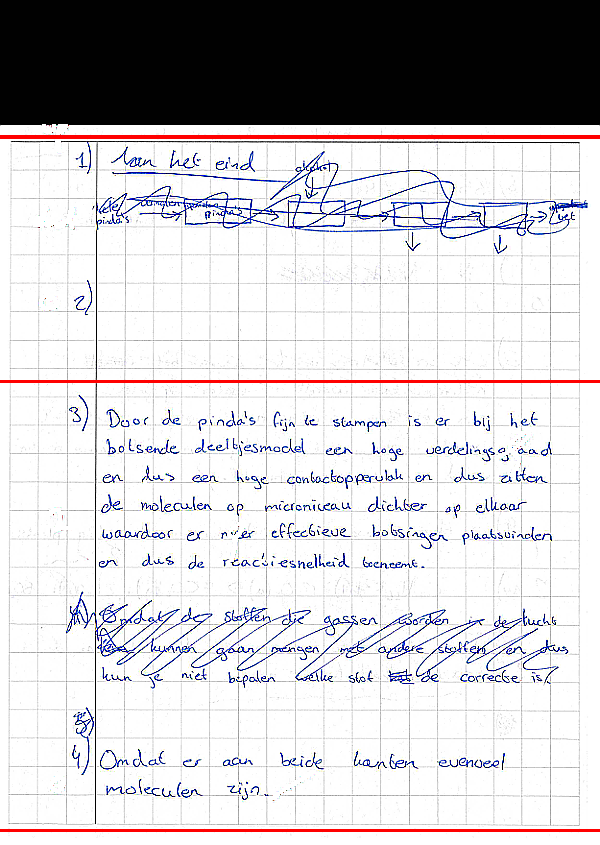 1) Aan het eind
alkohol
hele pinda's pinda's vet
2)
3) Door de pinda's fijn te stampen is er bij het
botsende deeltjesmodel een hoge verdelingsgraad
en dus een hoge contactoppervlak en dus zitten
de moleculen op microniveau dichter op elkaar
waardoor er meer effectieve botsingen plaatsvinden
en dus de reactiesnelheid toeneemt.
Omdat de stoffen die gassen worden in de lucht
kunnen gaan mengen met andere stoffen en dus
kun je niet bepalen welke stof de correcte is.
4) Omdat er aan beide kanten evenveel
moleculen zijn.